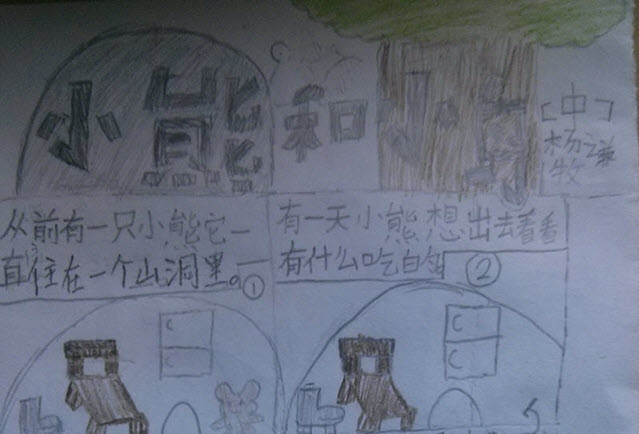 小熊和小
[中]
杨
牧
从前有一只小熊它一
直住在一个山洞里。①
有一天小熊想出去看看
有什么吃的 ②
C
C
C